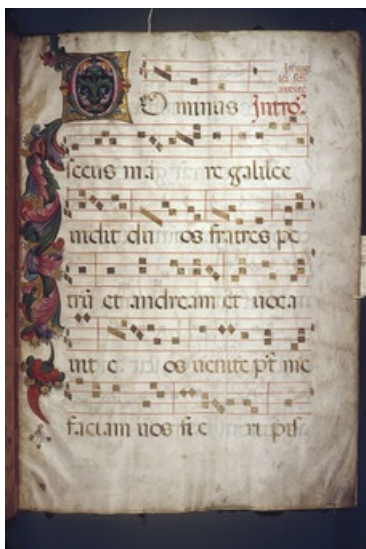 Dominus Intro.
secus ma re galilee
uidit du os fratres pe
tru et andream et uoca
uit e os uenite pt me
faciam uos fi e ri pis